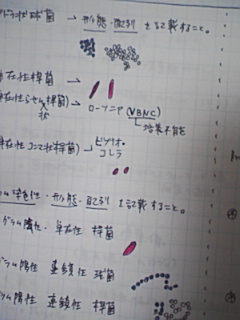 球菌 → 形態・配列 を記載すること。
在性桿菌 →
存在性らせん桿菌) → ローソニア (VBNC)
状
培養不能
存在性 コンマ状桿菌) → ビブリオ・
コレラ
染色性・形態・配列 を記載すること。
グラム陰性・単在性 桿菌
グラム陽性 連鎖性 球菌
グラム陽性 連鎖性 桿菌